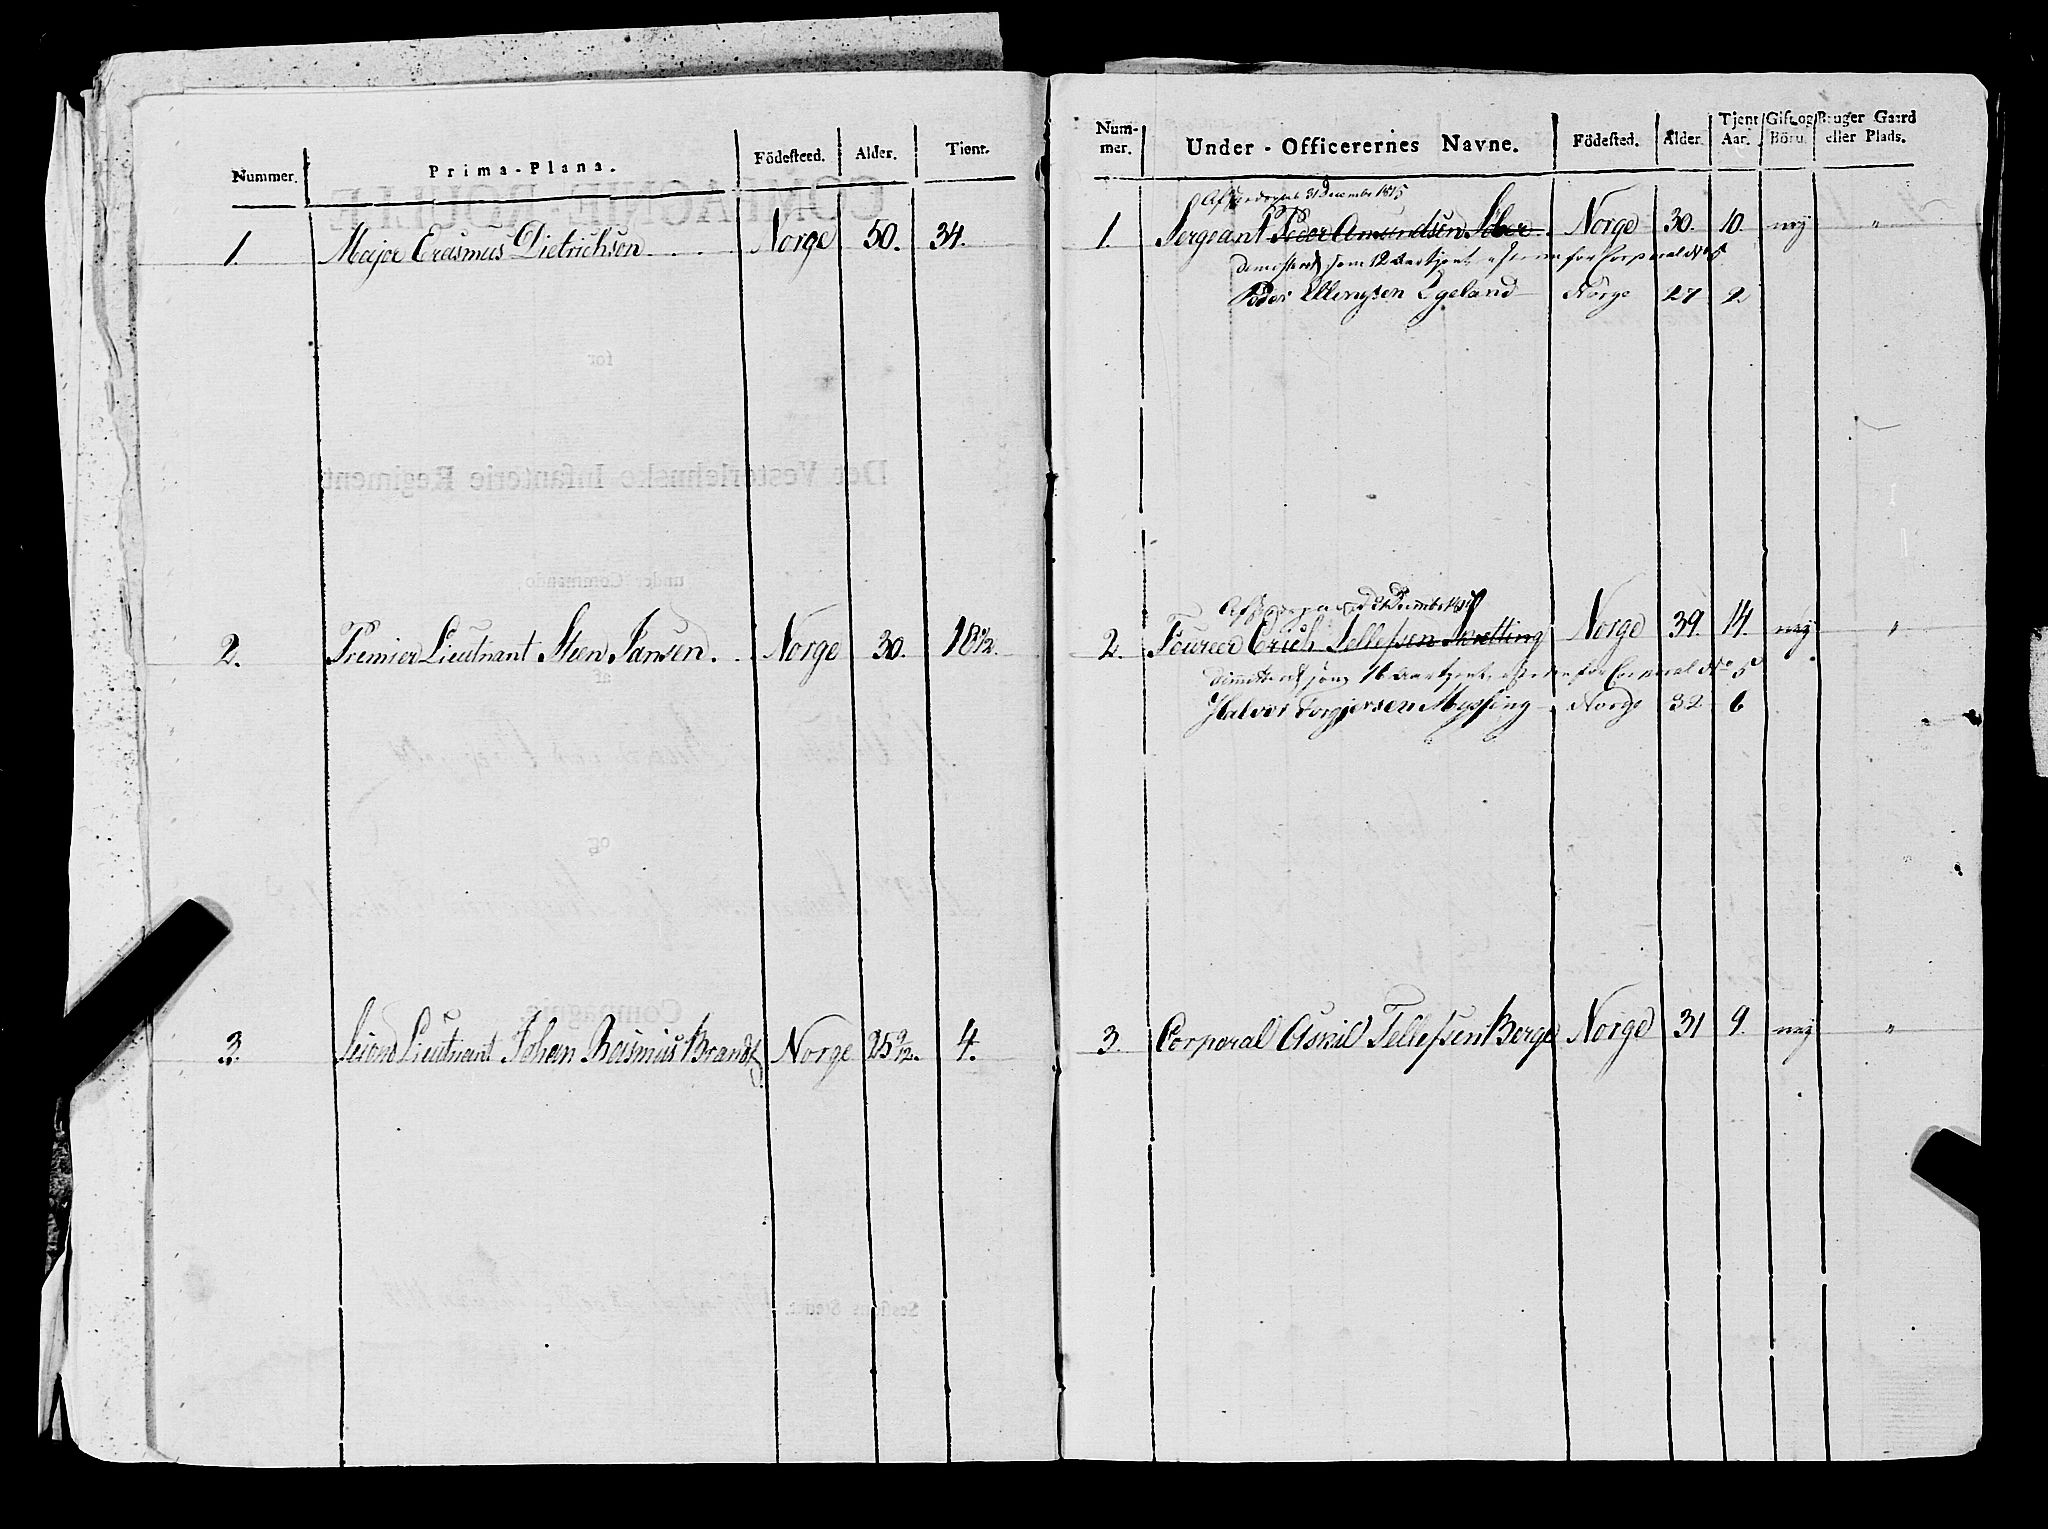 Nummer. Prima-Plana. Födesteed. Alder. Tient.
1. Major Erasmus Dietrichson Norge 50. 34.
2. Premier Lieutnant Steen Jansen. Norge 30. 18 6/12.
3. Second Lieutnant Johan Rasmus Brandt Norge 25 9/12. 4.
Num-mer. Under-Officerernes Navne. Födested. Alder. Tjent Aar. Gift og Börn. Bruger Gaard eller Plads.
Afskediget 31 December 1815
1. Sergeant Peder Amundsen Norge 30. 10. nej "
dimitteret som 12 Aar tjent, isteden for Corporal No 5
Peder Ellingsen Egeland Norge 27 9
Afskediget 31 December
2. Foureer Erich Tellefsen Norge 39. 14. nej "
dimitteret som 16 Aar tjent, isteden for Corporal No 5
Halvor Torgjersen Norge 32 6
3. Corporal Askil Tellefsen Berge Norge 31 9. nej "